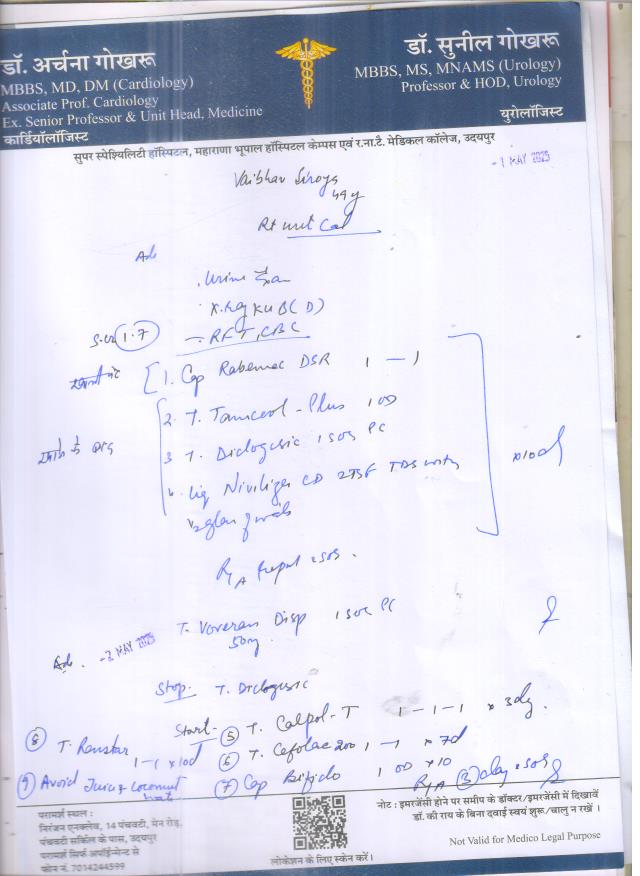 डॉ. अर्चना गोखरू
MBBS, MD, DM (Cardiology)
Associate Prof. Cardiology
Ex. Senior Professor & Unit Head, Medicine
कार्डियॉलॉजिस्ट
डॉ. सुनील गोखरू
MBBS, MS, MNAMS (Urology)
Professor & HOD, Urology
युरोलॉजिस्ट
सुपर स्पेश्यिलिटी हॉस्पिटल, महाराणा भूपाल हॉस्पिटल केम्पस एवं र.ना.टै. मेडिकल कॉलेज, उदयपुर
MAY 2025
Vaibhav
49 y
Rt Cal
Adv
Urine
X-Ray KUB (D)
1.7 RFT, CBC
खाली पेट
1. Cap DSR 1 — 1
खाने के बाद
2. T. - Plus 1 OD
3 T. 1 SOS PC
4. Liq CD TDS with
2 glass of
x 10d
R/A SOS.
T. Voveran Disp 1 SOS PC
50mg
Adv. -3 MAY 2025
Stop T.
Start- 5 T. Calpol-T 1-1-1 x 3day.
8 T. 1-1 x 10d
6 T. Cefolac 200 1-1 x 7d
9 Avoid Juice & Coconut
7 Cap Bifido 1 OD x 10
R/A 3 day SOS
परामर्श स्थल :
निरंजन एनक्लेव, 14 पंचवटी, मेन रोड़,
पंचवटी सर्किल के पास, उदयपुर
परामर्श सिर्फ अपॉईन्मेन्ट से
फोन नं. 7014244599
लोकेशन के लिए स्केन करें।
नोट : इमरजेंसी होने पर समीप के डॉक्टर/इमरजेंसी में दिखावें
डॉ. की राय के बिना दवाई स्वयं शुरू/चालु न रखें ।
Not Valid for Medico Legal Purpose